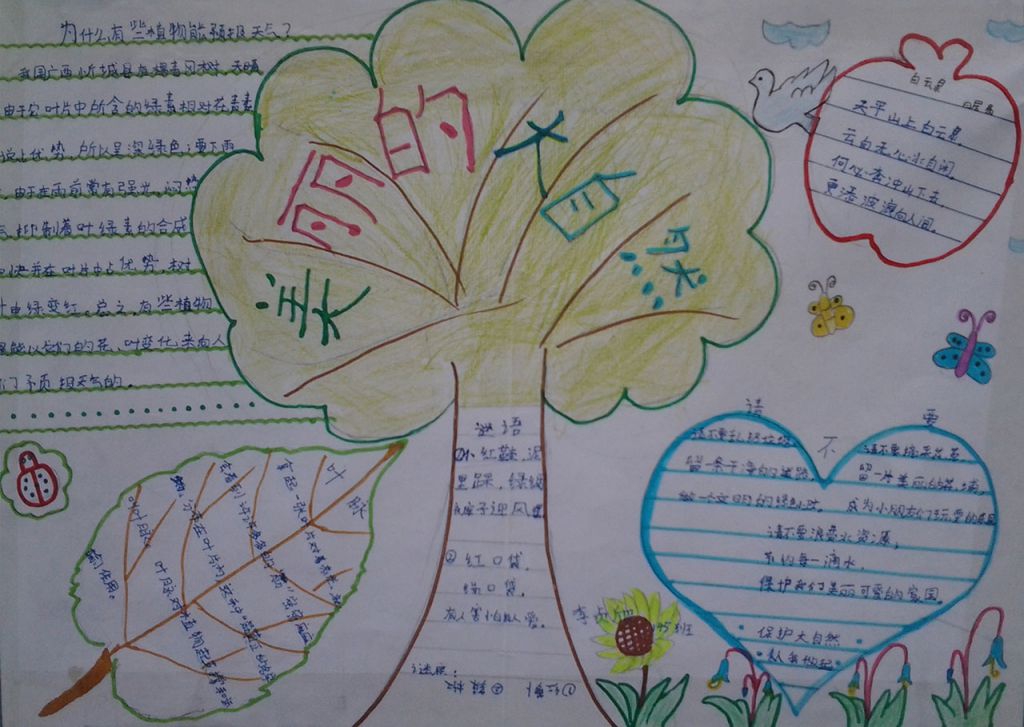 为什么有些植物能预报天气?
我国广西忻城县有爆青冈树,天晴
由于它叶片中所含的绿素相对花青素
占优势,所以呈深绿色;要下雨
由于在雨前常有强光、闷热
抑制着叶绿素的合成
并在叶片中占优势,树
叶由绿变红。总之,有些植物
是能以它们的花、叶变化来向人
们预报天气的。
美丽的大自然
白云泉
白居易
天平山上白云泉,
云自无心水自闲。
何必奔冲山下去,
更添波浪向人间。
叶脉
拿起一张叶片对着亮光,就
会看到许许多多的
分布在叶片内,这就叫
叫叶脉。
叶脉对植物起支撑和
输作用。
谜语
①小红鞋,泥
里踩,绿纹
②红口袋,
绿口袋,
有人害怕有人爱。
谜底:
李贞
95班
请 不 要
请不要乱扔垃圾
留一条干净的道路,
做一个文明的绿色小孩。
请不要摘采花草
留一片美丽的花埔,
成为小朋友们玩耍的
请不要浪费水资源,
节约每一滴水,
保护我们美丽可爱的家园。
保护大自然
从我做起